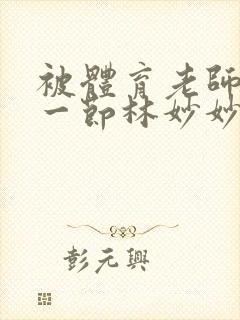 被體育老師
一節林妙妙
彭元興